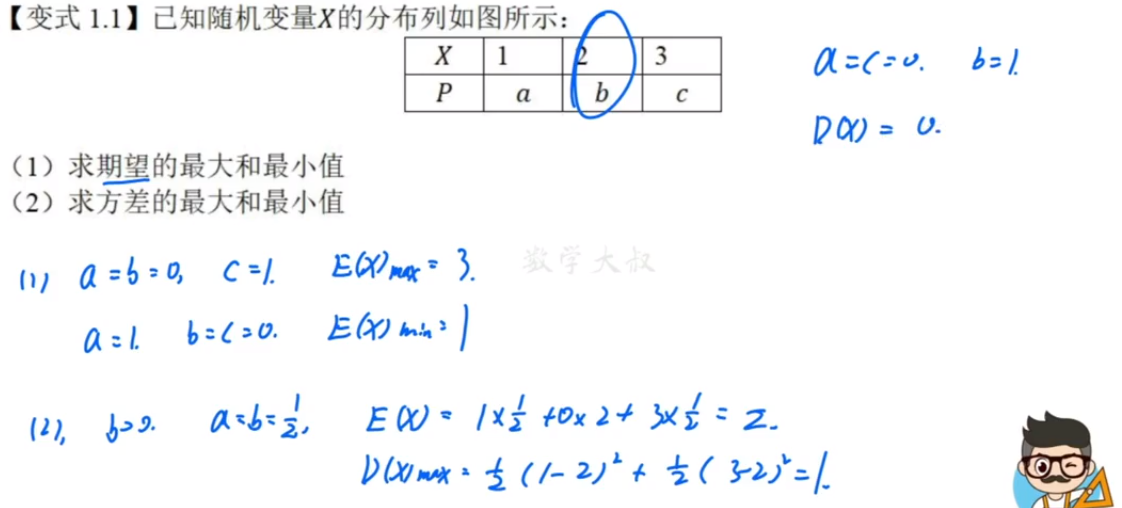 【变式 1.1】已知随机变量X的分布列如图所示：
X 1 2 3
P a b c
a=c=0. b=1.
D(X) = 0.
（1）求期望的最大和最小值
（2）求方差的最大和最小值
数学大叔
(1) a=b=0, c=1. E(X)max = 3.
a=1. b=c=0. E(X)min = 1
(2), b=0. a=b=1/2, E(X) = 1×1/2+0×2+3×1/2=2.
D(X)max = 1/2(1-2)²+1/2(3-2)²=1.